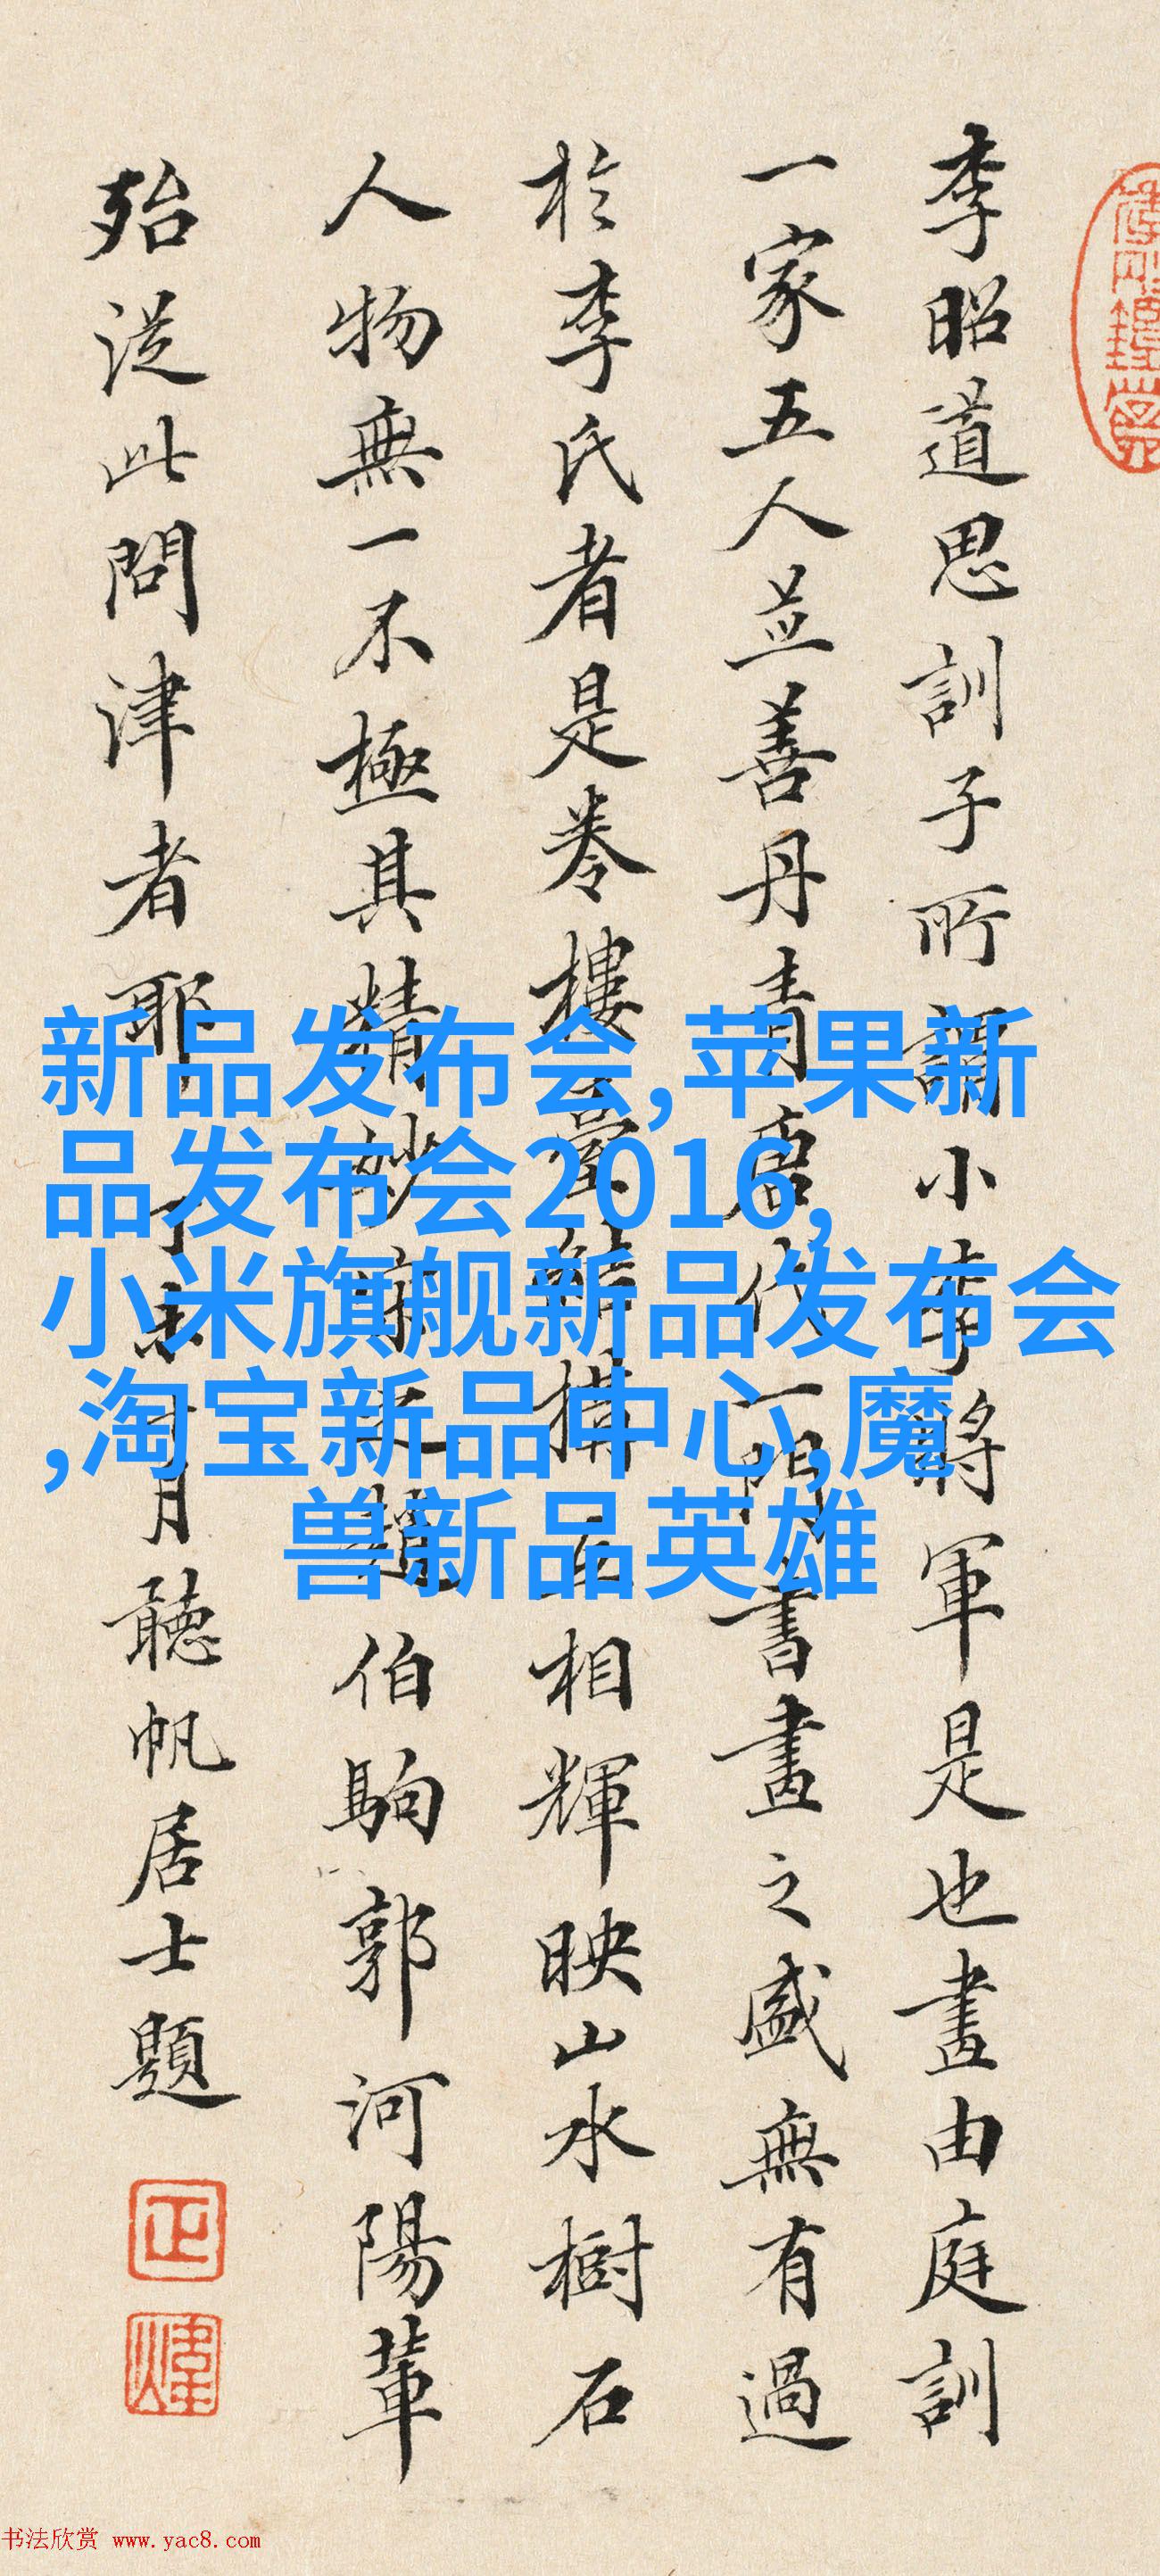 李昭道思訓子所謂小李將軍是也畫由庭訓
一家五人並善丹青唐代一門書畫之盛無有過
於李氏者是卷樓臺結構互相輝映山水樹石
人物無一不極其精妙宗之趙伯駒郭河陽輩
殆從此問津者耶丁未 月聽帆居士題
新品发布会,苹果新
品发布会2016,
小米旗舰新品发布会
,淘宝新品中心,魔
兽新品英雄
书法欣赏 www.yac8.com